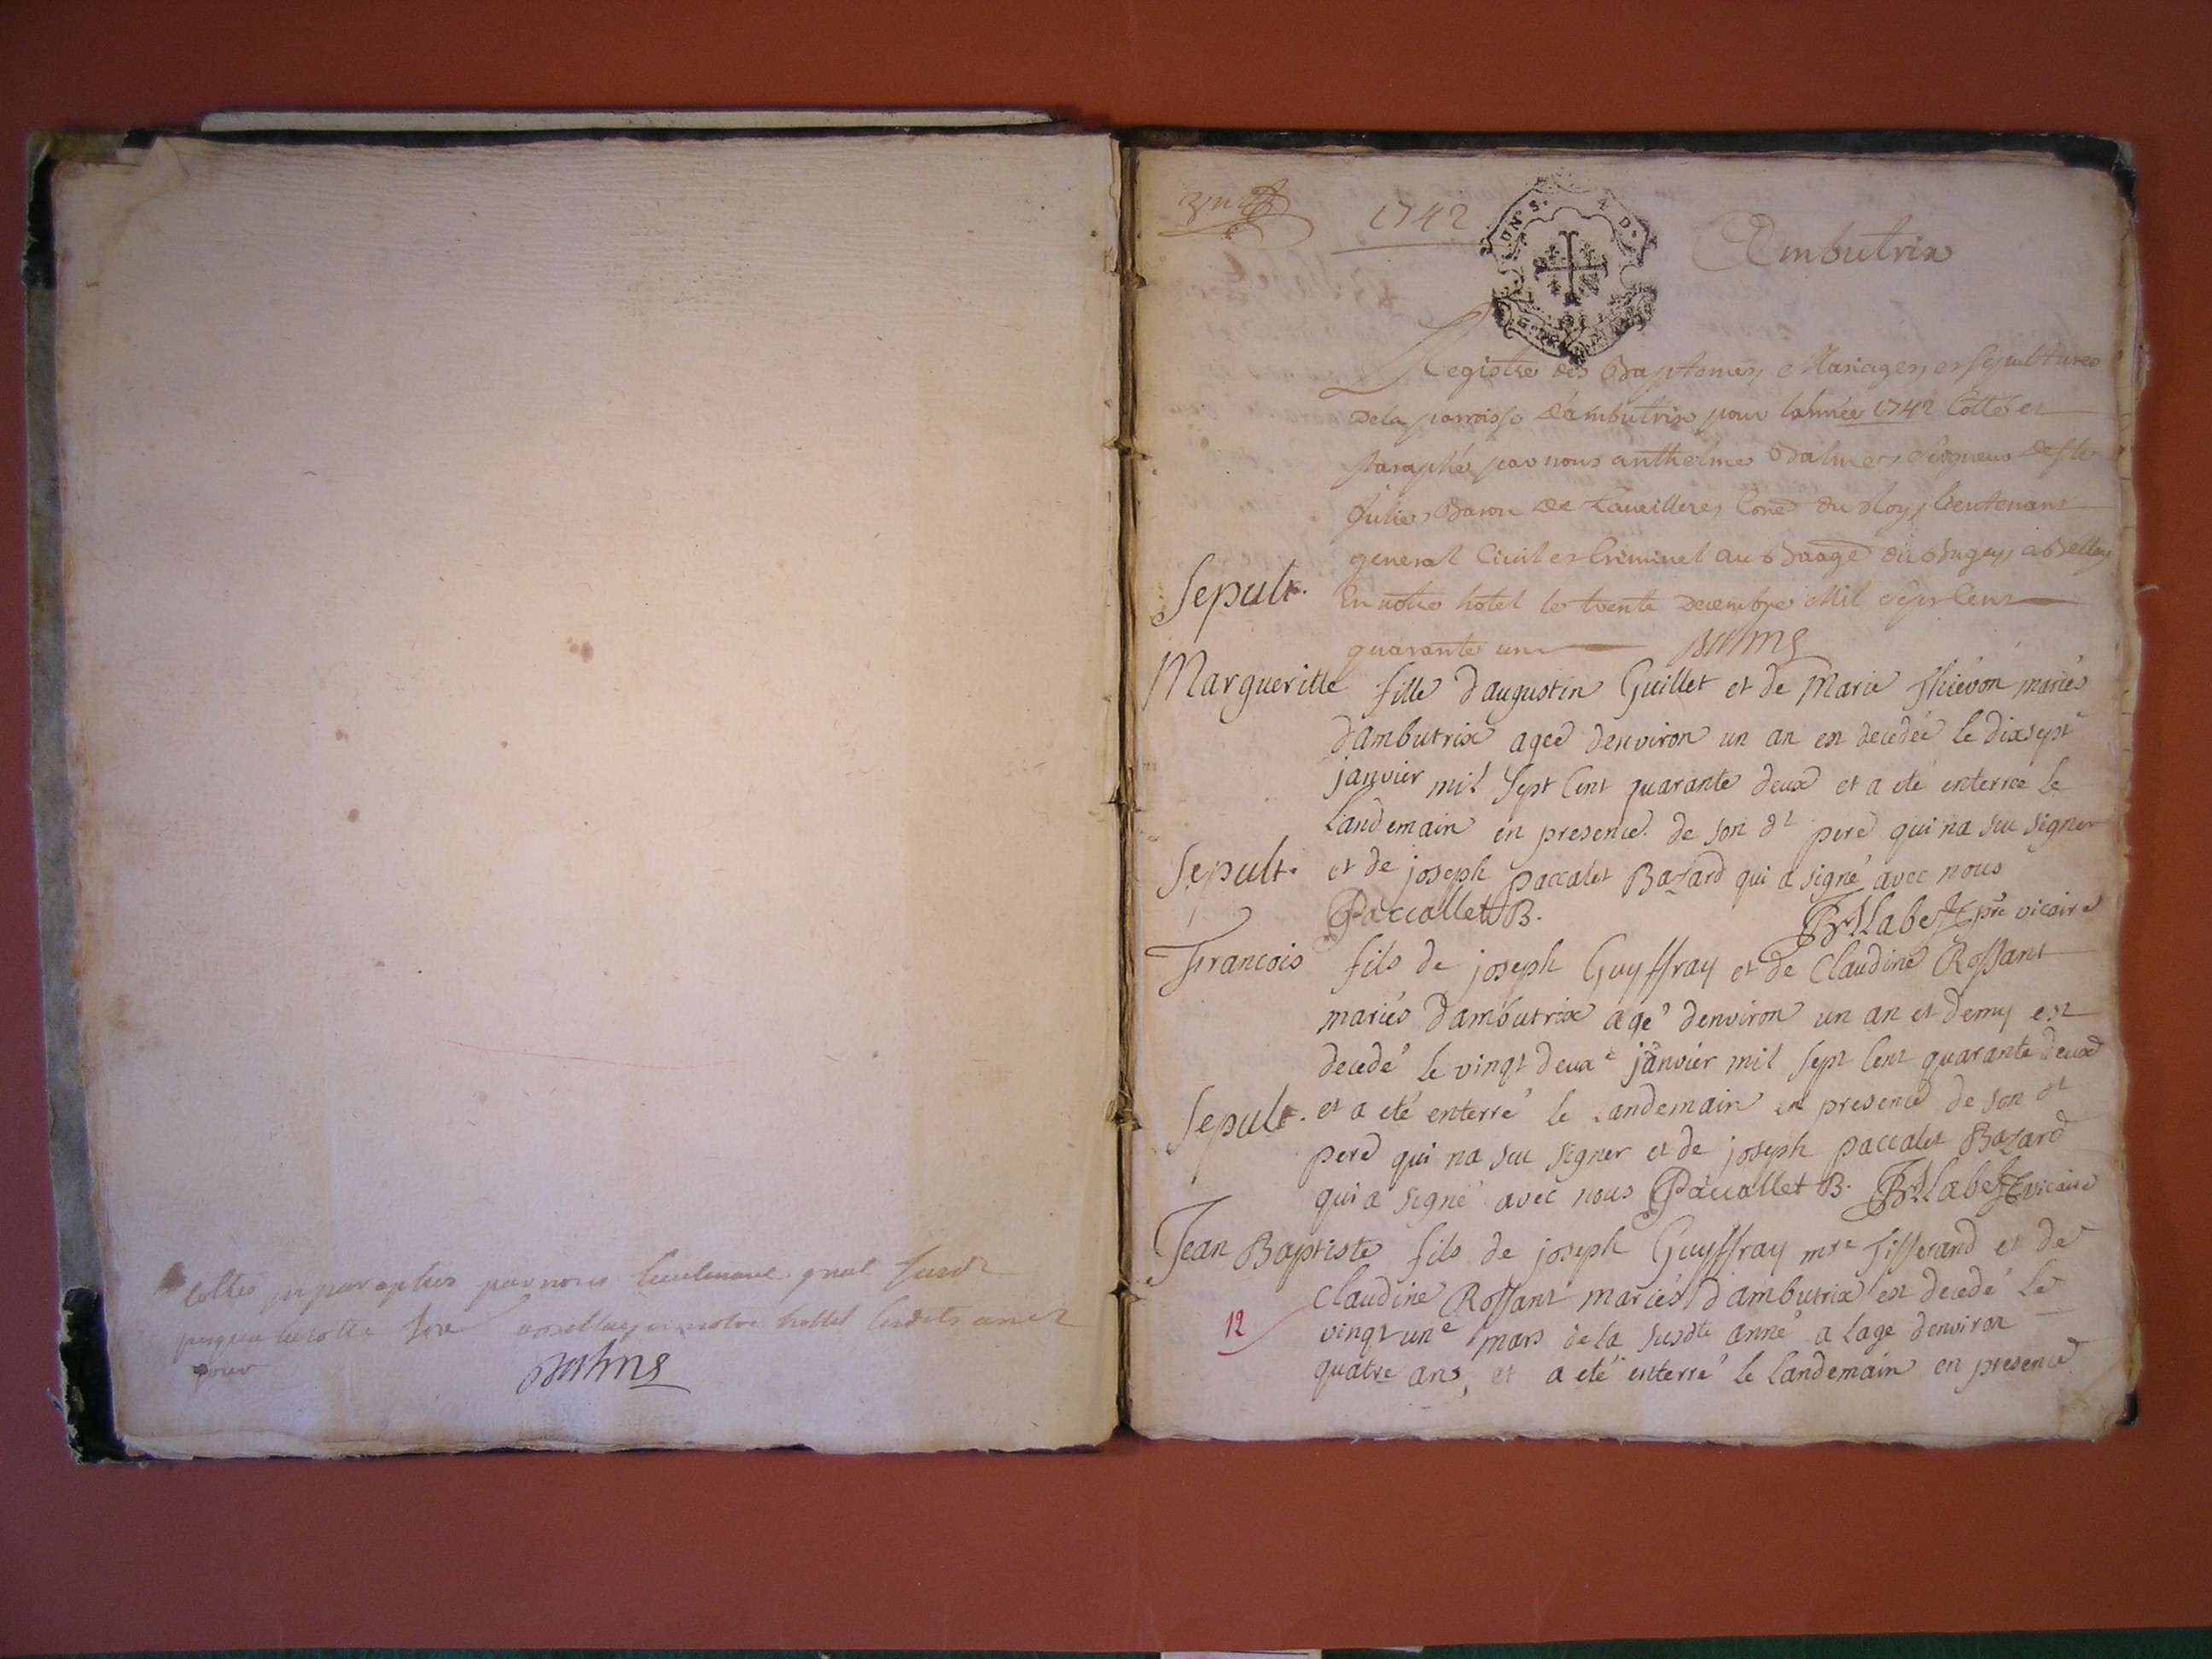 Cottés et paraphés par nous lieutenant gnal susdt
jusques
notre hottel lesdits an et
jour
Balme
1742
Ambutrix
Registre des Baptemes, Mariages, et sepultures
de la parroisse d'ambutrix pour l'année 1742 Cotté et
paraphé par nous anthelme Balme, seigneur de ste
Julie, Baron de Laveilleres, Conr du Roy, lieutenant
general Civil et Criminel au Baage du Bugey, a Belley
En notre hotel le trente decembre Mil sept Cent
quarante un Balme
Sepult.
Margueritte fille d'augustin Guillet et de Marie Thiévon mariés
d'ambutrix agee denviron un an est decedée le dixsept
janvier mil sept Cent quarante deux et a eté enterrée le
landemain en presence de son dt pere qui na scu signer
Sepult. et de joseph paccalet Bazard qui a signé avec nous
Paccallet B. pre vicaire
Francois fils de joseph Guyffray et de Claudine Rossant
mariés dambutrix agé denviron un an et demy est
decedé le vingt deuxe janvier mil sept Cent quarante deux
Sepult. et a eté enterré le landemain en presence de son dt
pere qui na scu signer et de joseph paccalet Bazard
qui a signé avec nous Paccallet B. vicaire
Jean Baptiste fils de joseph Guyffray mre Tisserand et de
Claudine Rossant mariés d'ambutrix est decedé le
12 vingt une mars de la susdte anné a lage denviron
quatre ans, et a eté enterré le landemain en presence